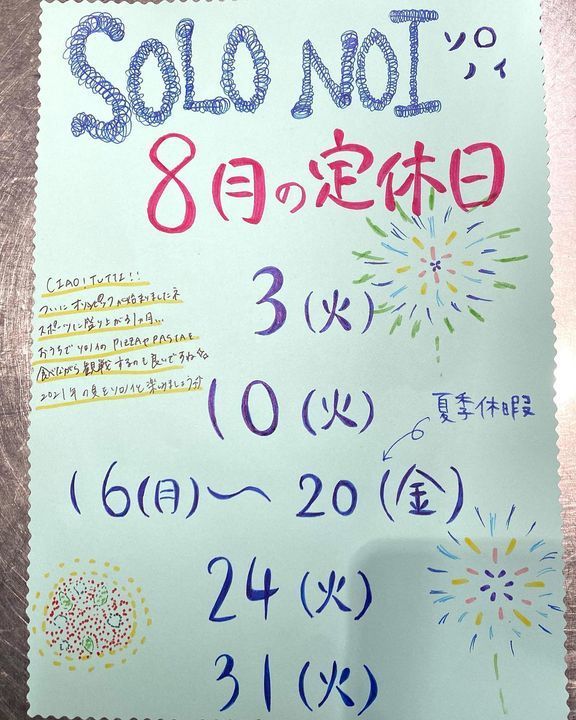 SOLO NOI ソロ
ノイ
8月の定休日
CIAO! TUTTI!!
ついにオリンピックが始まりましたネ
スポーツに盛り上がる1ヶ月...
おうちでソロノイの PIZZAやPASTAを
食べながら観戦するのも良いですね
2021年の夏をソロノイと楽しみましょう
3(火)
10(火)
夏季休暇
16(月)〜20(金)
24(火)
31(火)